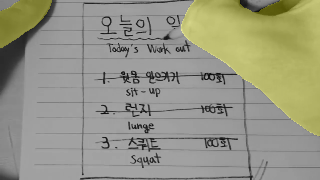 오늘의
Today's Work out
1. 윗몸 일으키기 100회
sit-up
2. 런지 100회
lunge
3. 스쿼트 100회
Squat